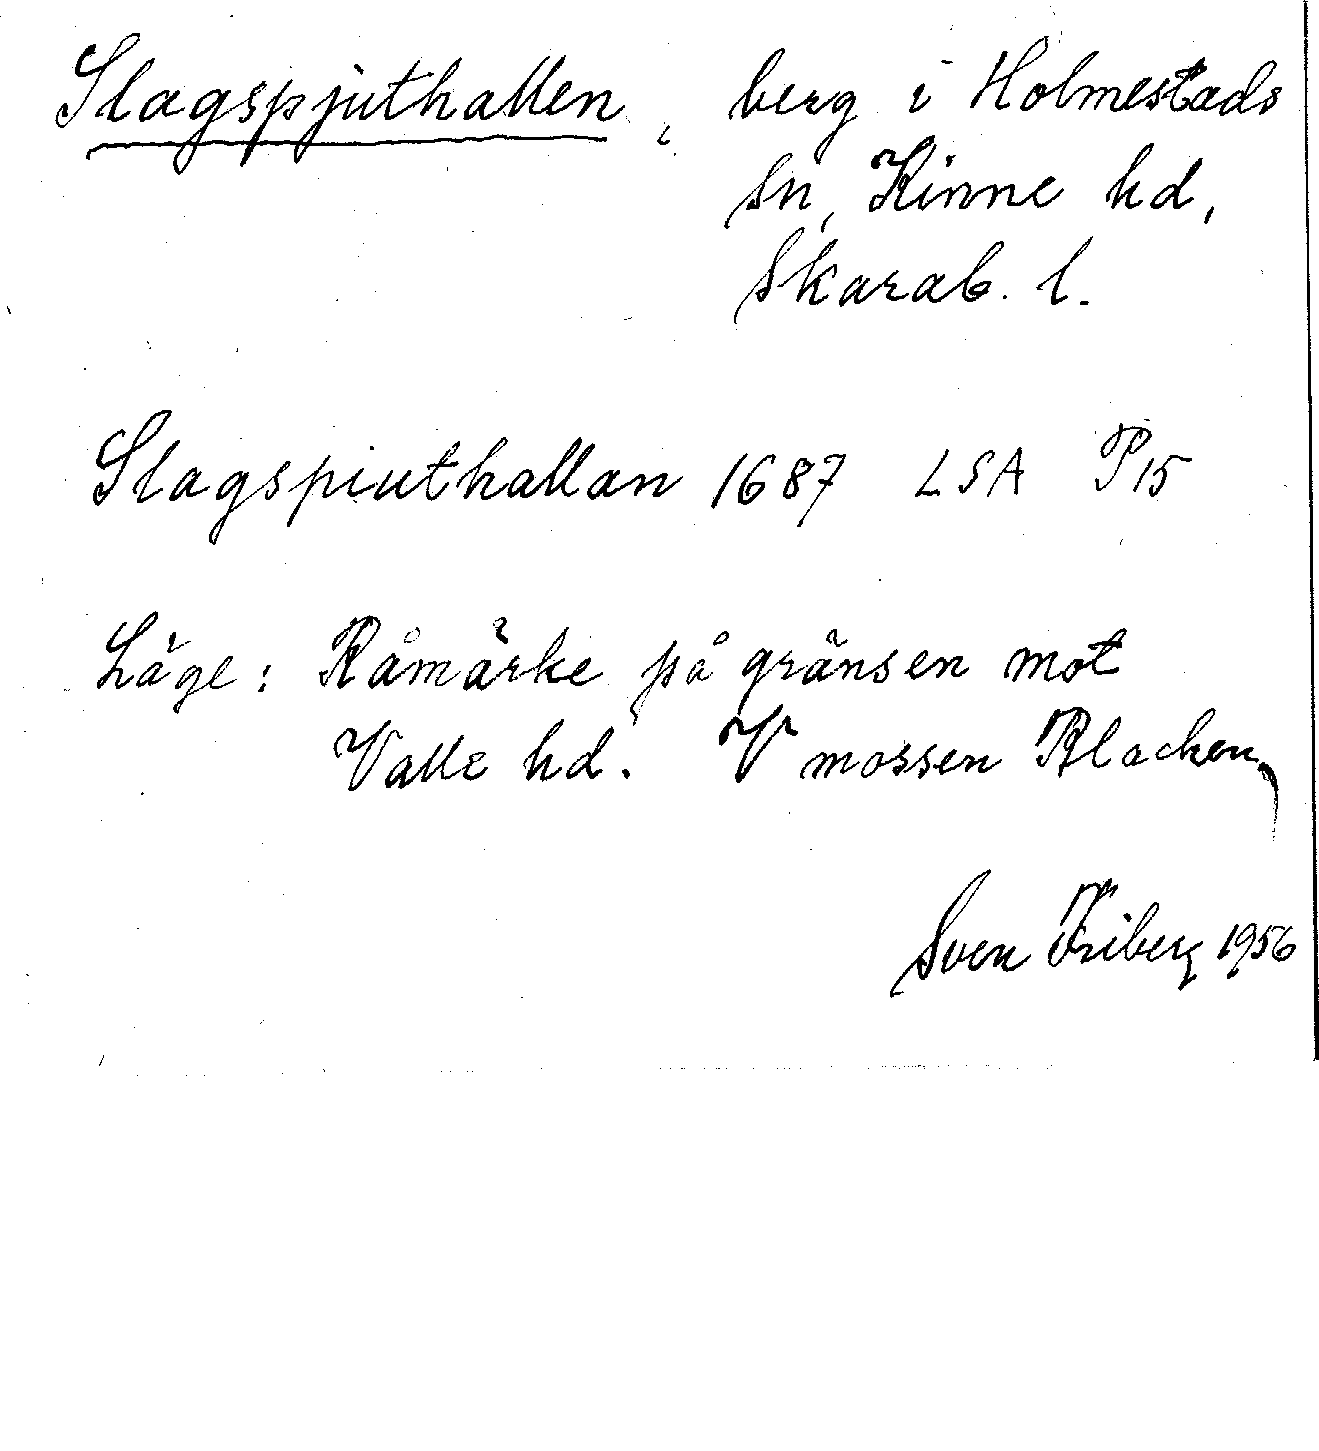 Slagspjuthallen, berg i Holmestads
sn, Kinne hd,
Skarab. l.
Slagspiuthallan 1687 LSA P15
Läge: Råmärke på gränsen mot
Valle hd. V mossen Blacken,
Sven Friberg 1956